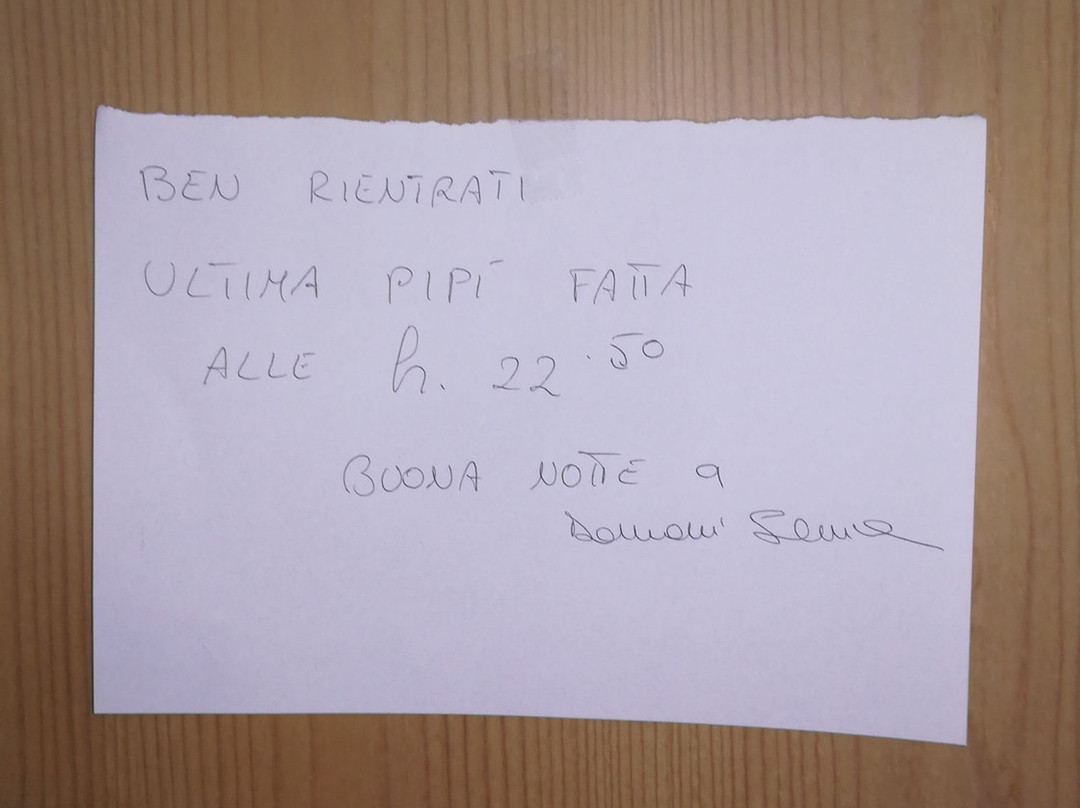 BEN RIENTRATI
ULTIMA PIPÍ FATTA
ALLE h. 22.50
BUONA NOTTE a
Domani